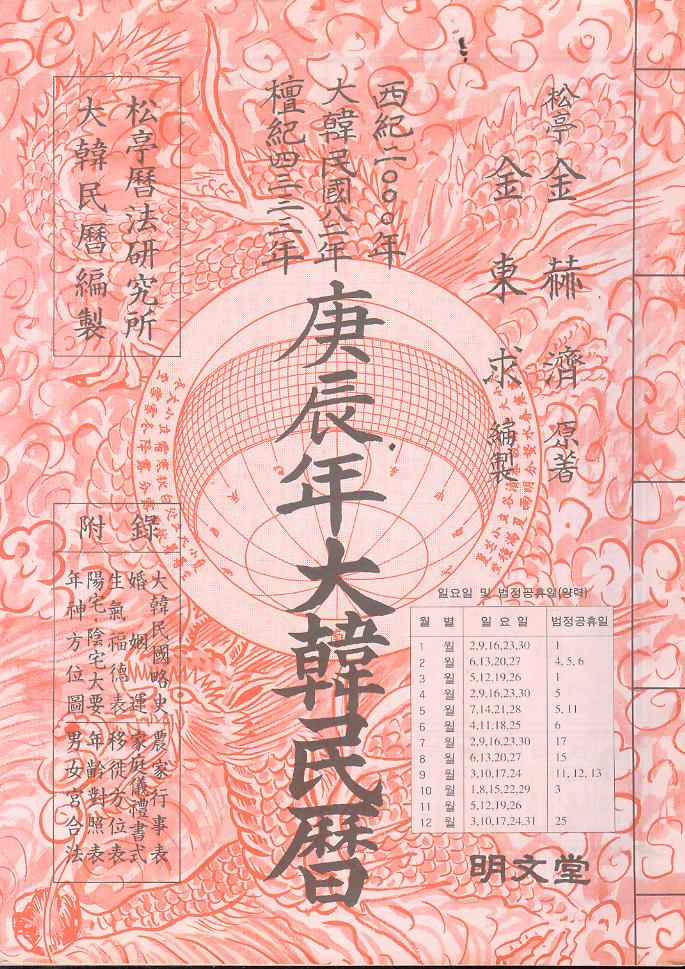 松亭 金赫濟 原著
金東求 編製
西紀二〇〇〇年
大韓民國八二年
檀紀四三三三年
庚辰年大韓民曆
松亭曆法研究所
大韓民曆編製
附錄
大韓民國略史
婚姻運
生氣福德表
陽宅·陰宅大要
年神方位圖
農家行事表
家庭儀禮書式
移徙方位表
年齡對照表
男女宮合法
일요일 및 법정공휴일(양력)
월 별 일 요 일 법정공휴일
1 월 2,9,16,23,30 1
2 월 6,13,20,27 4, 5, 6
3 월 5,12,19,26 1
4 월 2,9,16,23,30 5
5 월 7,14,21,28 5, 11
6 월 4,11,18,25 6
7 월 2,9,16,23,30 17
8 월 6,13,20,27 15
9 월 3,10,17,24 11, 12, 13
10 월 1,8,15,22,29 3
11 월 5,12,19,26
12 월 3,10,17,24,31 25
明文堂